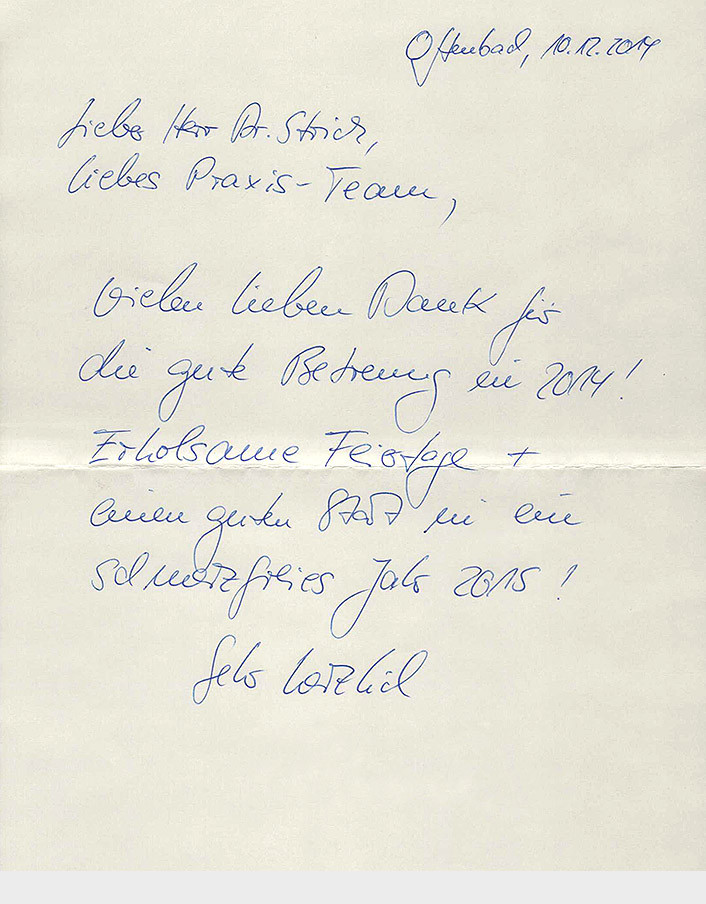 Offenbach, 10.12.2014
Lieber Herr Dr. Strick,
liebes Praxis-Team,
Vielen lieben Dank für
die gute Betreuung in 2014!
Erholsame Feiertage +
einen guten Start in ein
schmerzfreies Jahr 2015!
Sehr herzlich